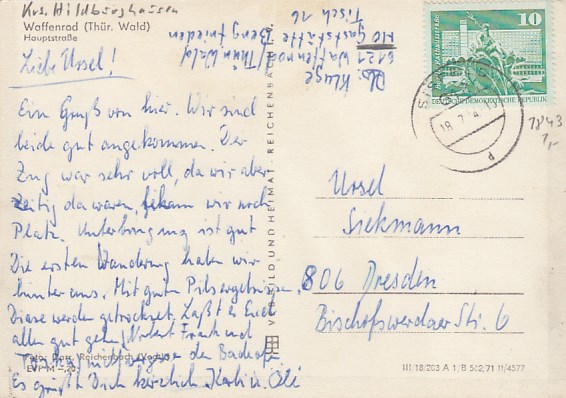 Krs. Hildburghausen
Waffenrod (Thür. Wald)
Hauptstraße
Liebe Ursel!
Ein Gruß von hier. Wir sind
beide gut angekommen. Der
Zug war sehr voll, da wir aber
zeitig da waren, bekam wir noch
Platz. Unterbringung ist gut
Die ersten Wanderung haben wir
hinter uns. Mit guten Pilsergebnisse.
Diese werden getrocknet. Laßt es Euch
allen gut gehen, Norbert Frank und
der Bachofs
Es grüßt Dich herzlich
Foto: Darr, Reichenbach (Vogtl)
EVP M –,20
Kluge
6121 Waffenrod/Thür Wald
HO gaststätte Bergfrieden
Tisch 16
VERLAG BILD UND HEIMAT · REICHENBACH I. V.
10
DEUTSCHE DEMOKRATISCHE REPUBLIK
1843
1,-
Ursel
Siekmann
806 Dresden
Bischofswerdaer Str. 6
III/18/203 A 1/B 502/71 II/4577